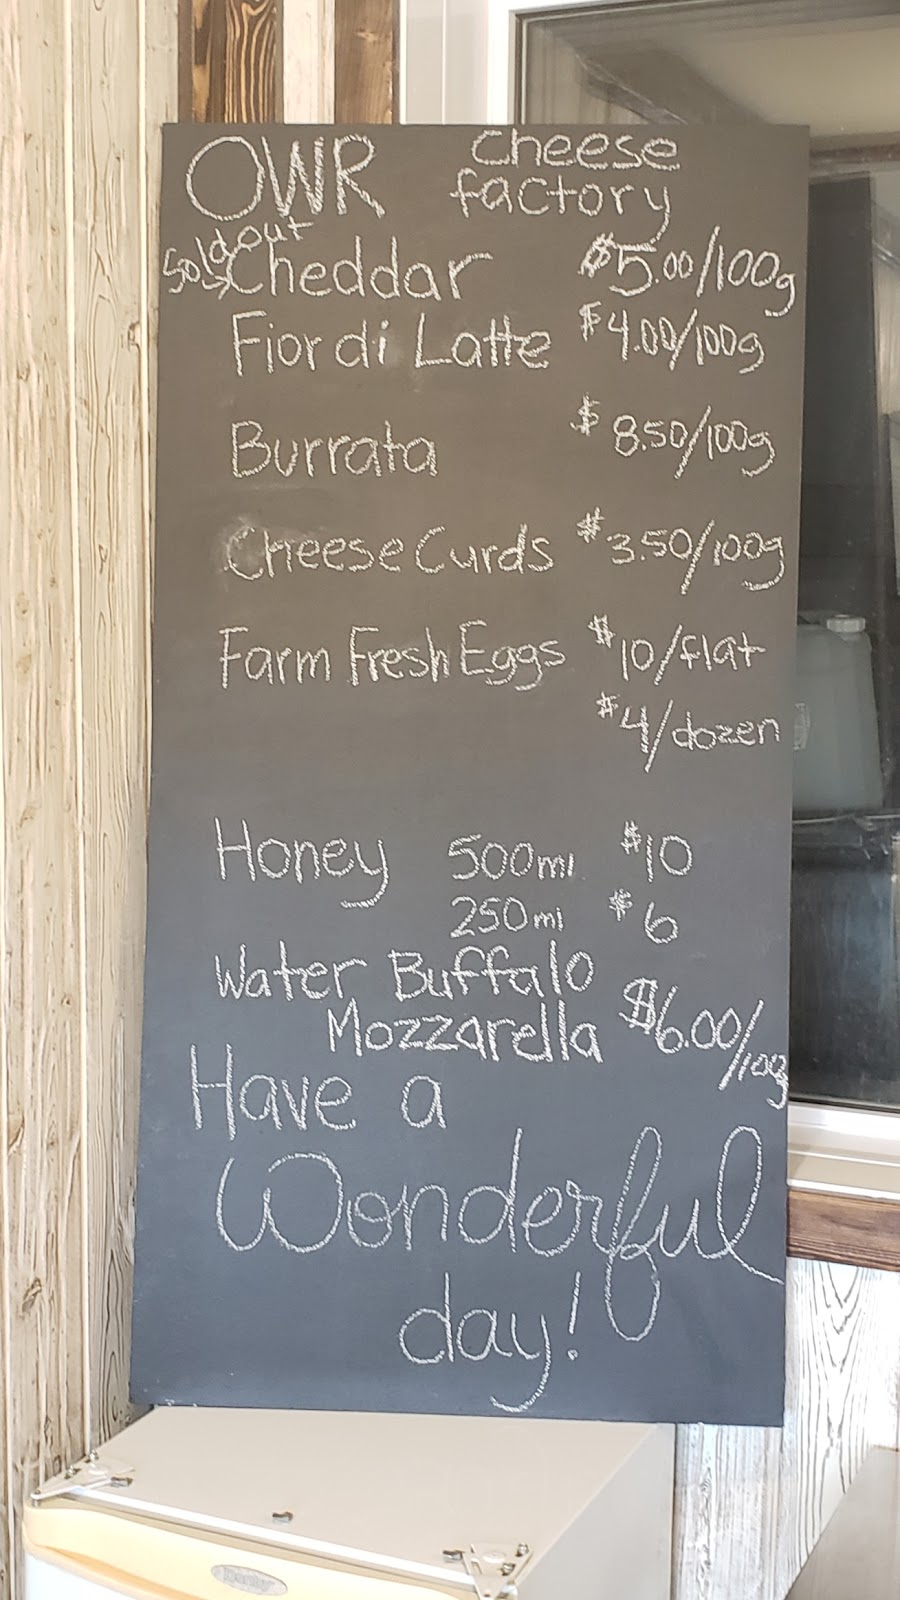 OWR Cheese factory
Sold out
Cheddar $5.00/100g
Fior di Latte $4.00/100g
Burrata $8.50/100g
Cheese Curds $3.50/100g
Farm Fresh Eggs $10/flat
$4/dozen
Honey 500ml $10
250ml $6
Water Buffalo
Mozzarella $6.00/100g
Have a
Wonderful
day!
Danby